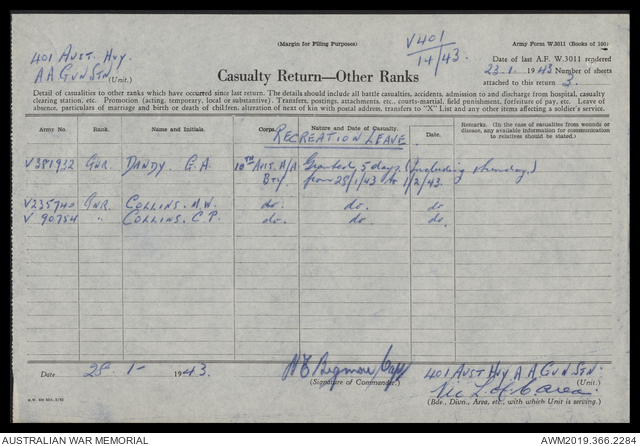 (Margin for Filing Purposes)
V401
14/43.
Army Form W.3011 (Books of 100)
401 Aust. Hvy.
A A Gun Stn. (Unit.)
Casualty Return—Other Ranks
Date of last A.F. W.3011 rendered
23.1. 1943 Number of sheets
attached to this return 3.
Detail of casualties to other ranks which have occurred since last return. The details should include all battle casualties, accidents, admission to and discharge from hospital, casualty
clearing station, etc. Promotion (acting, temporary, local or substantive). Transfers, postings, attachments, etc., courts-martial, field punishment, forfeiture of pay, etc. Leave of
absence, particulars of marriage and birth or death of children, alteration of next of kin with postal address, transfers to "X" List and any other items affecting a soldier's service.
Army No. Rank. Name and Initials. Corps. Nature and Date of Casualty. Date. Remarks. (In the case of casualties from wounds or
disease, any available information for communication
to relatives should be stated.)
RECREATION LEAVE
V381932 Gnr. DANDY. G.A. 10th Aust. A/A Granted 5 days. (including
Bty. from 28/1/43 to 1/2/43.
V235740 Gnr. COLLINS. M.W. do. do. do
V 90754 " COLLINS. C.P. do. do. do
Date 28-1- 1943.
(Signature of Commander.)
401 Aust Hvy A A Gun Stn.
(Unit.)
Vic L of C area
(Bde., Divn., Area, etc., with which Unit is serving.)
AUSTRALIAN WAR MEMORIAL
AWM2019.366.2284